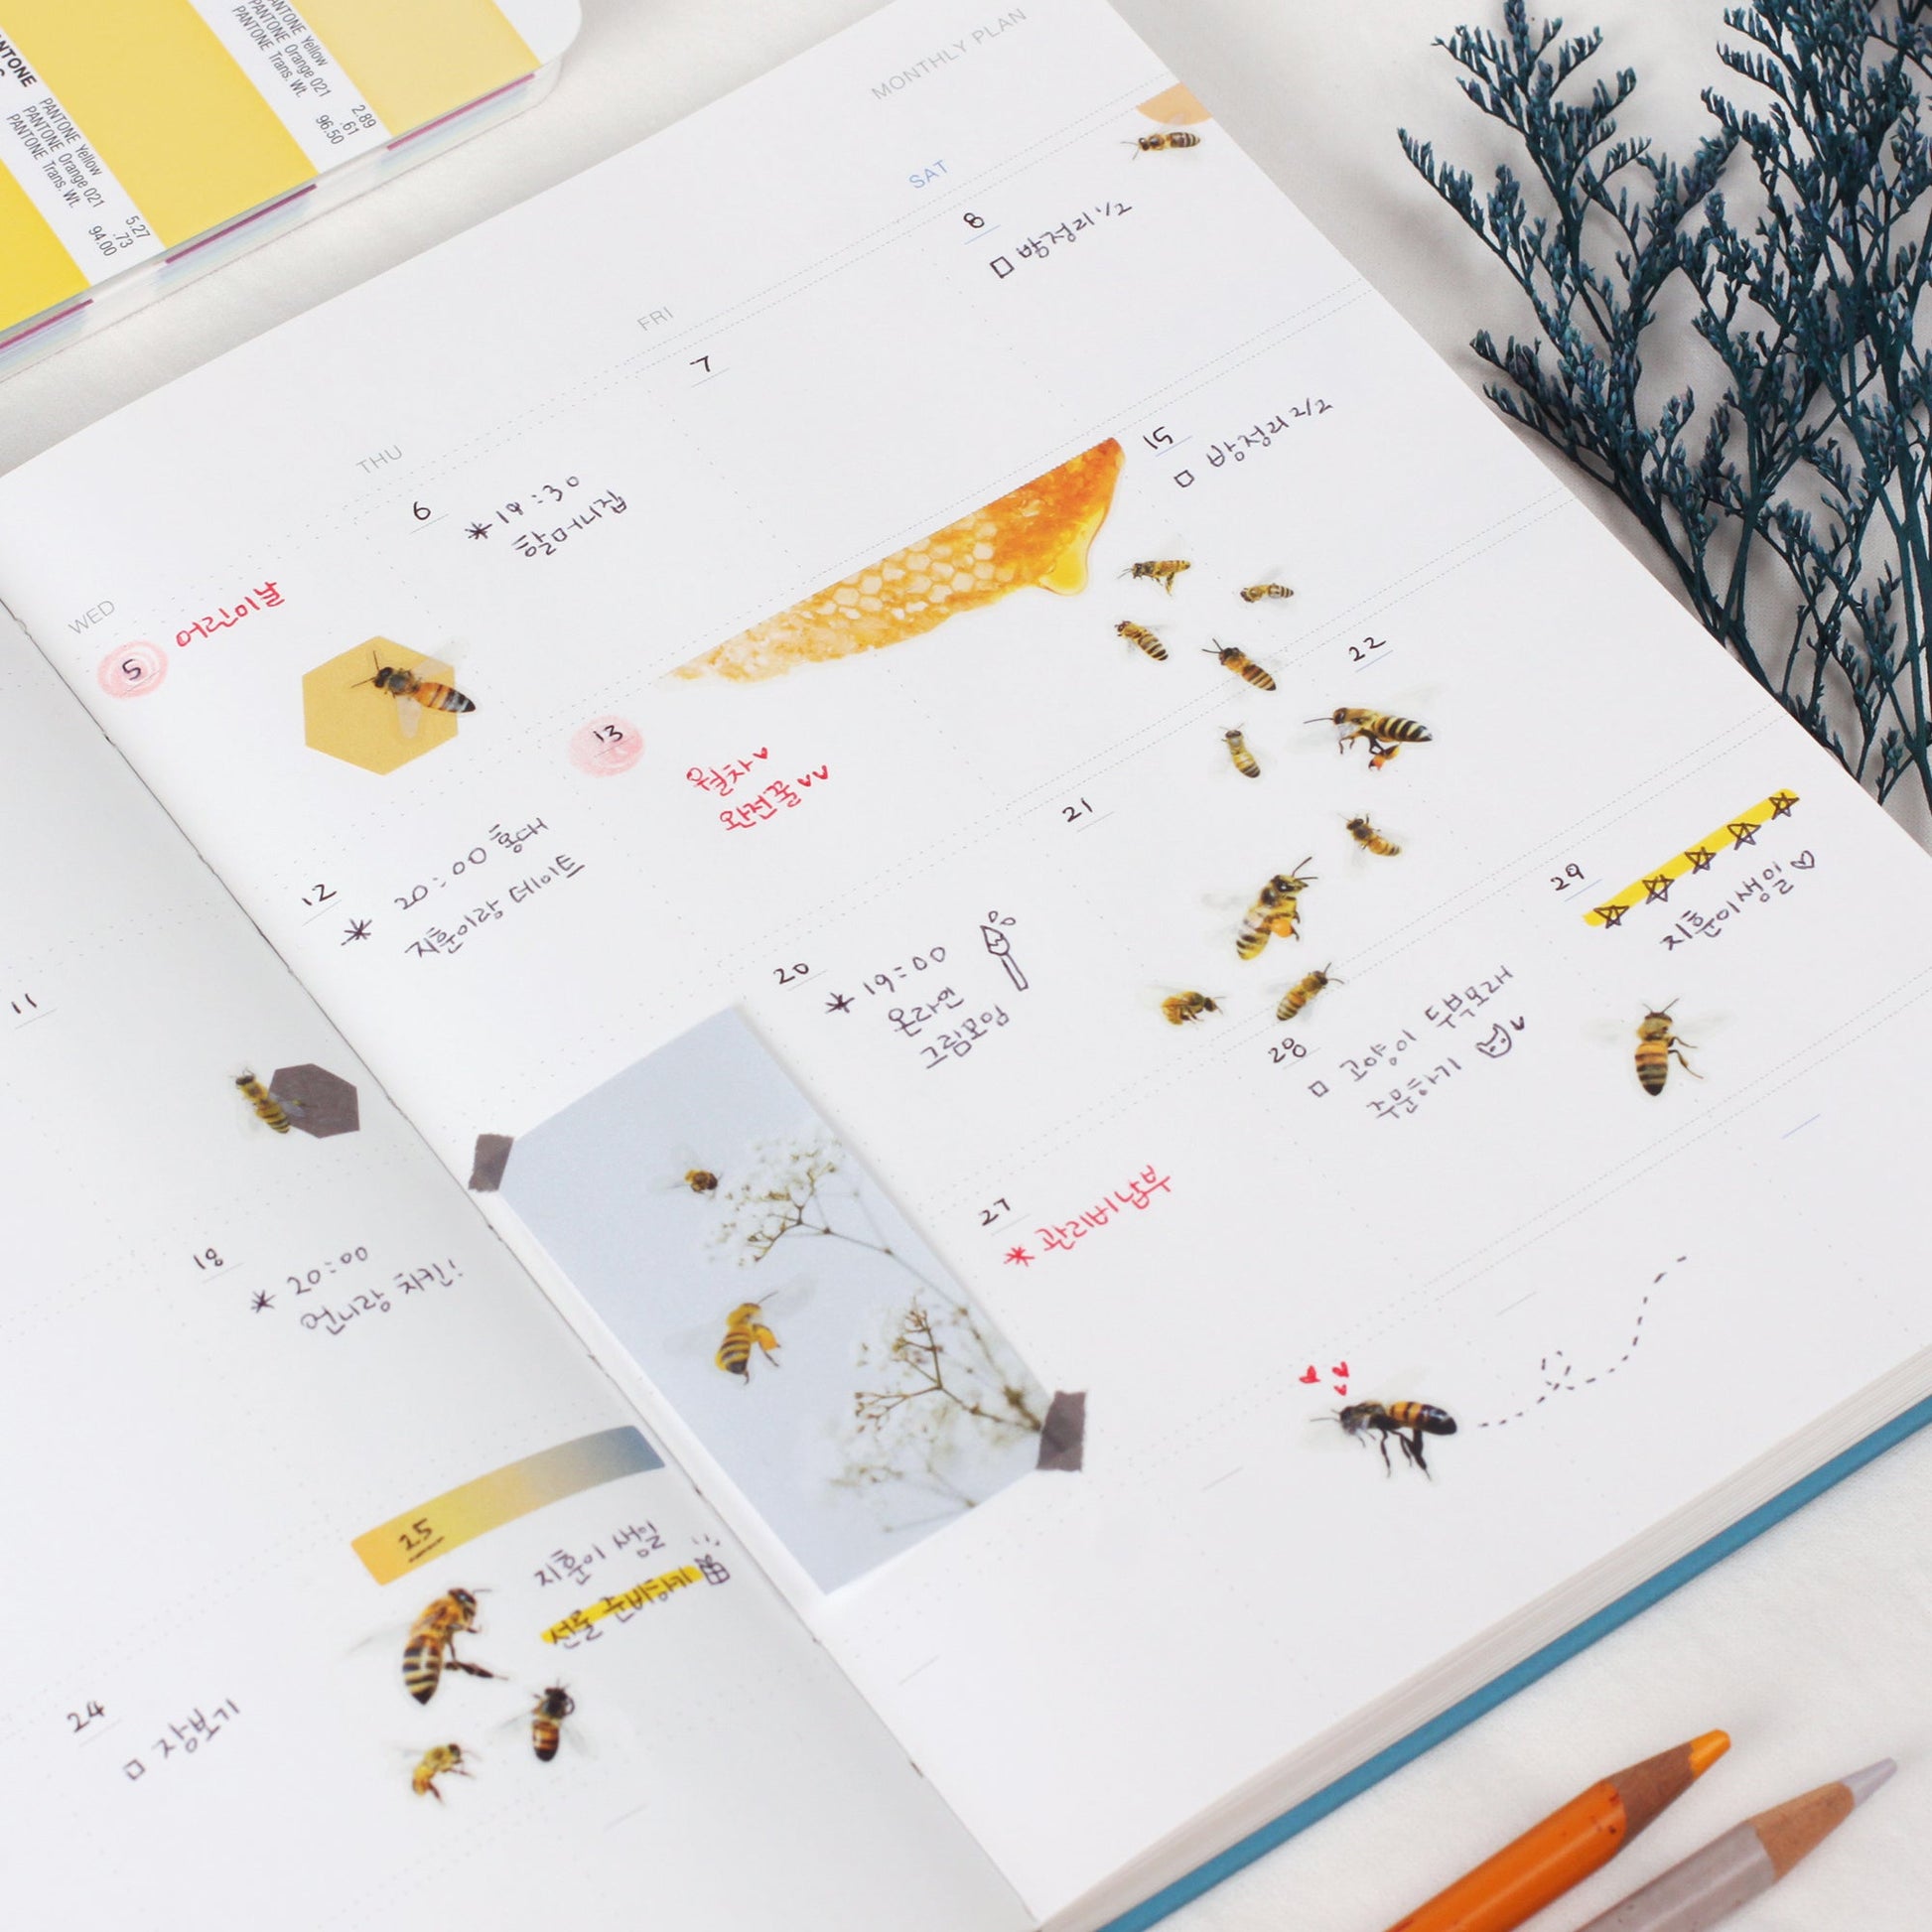 PANTONE Yellow 2.89
PANTONE Orange 021 .61
PANTONE Trans. Wt. 96.50
PANTONE
PANTONE Yellow 5.27
PANTONE Orange 021 .73
PANTONE Trans. Wt. 94.00
MONTHLY PLAN
WED
THU
FRI
SAT
5 어린이날
6
*19:30
할머니집
7
8
방정리 1/2
11
12
* 20:00 홍대
지훈이랑 데이트
13
월차
완전꿀
15
방정리 2/2
18
* 20:00
언니랑 치킨!
20
* 19:00
온라인
그림모임
21
22
24
장보기
25
지훈이 생일
선물 준비하기
27
* 관리비 납부
28
고양이 두부모래
주문하기
29
지훈이 생일